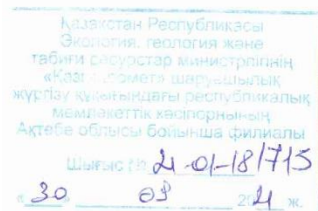 Қазақстан Республикасы
Экология, геология және
табиғи ресурстар министрлігінің
«Қазгидромет» шаруашылық
жүргізу құқығындағы республикалық
мемлекеттік кәсіпорнының
Ақтөбе облысы бойынша филиалы
Шығыс № 21-01-18/715
«30» 09 2021 ж.